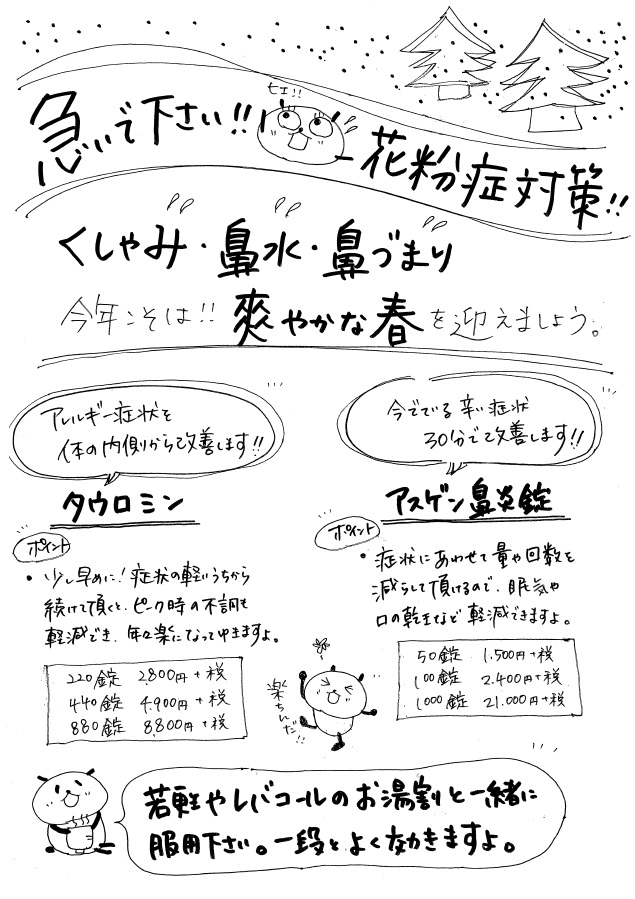 急いで下さい!!
ヒェ!!
花粉症対策!!
くしゃみ・鼻水・鼻づまり
今年こそは!! 爽やかな春を迎えましょう。
アレルギー症状を
体の内側から改善します!!
タウロミン
ポイント
・少し早めに!症状の軽いうちから
続けて頂くと、ピーク時の不調も
軽減でき、年々楽になってゆきますよ。
220錠 2.800円+税
440錠 4.900円+税
880錠 8.800円+税
今でてる辛い症状
30分で改善します!!
アスゲン鼻炎錠
ポイント
・症状にあわせて量や回数を
減らして頂けるので、眠気や
口の乾きなど軽減できますよ。
50錠 1.500円+税
100錠 2.400円+税
1000錠 21.000円+税
楽ちんだ!!
若甦やレバコールのお湯割と一緒に
服用下さい。一段とよく効きますよ。